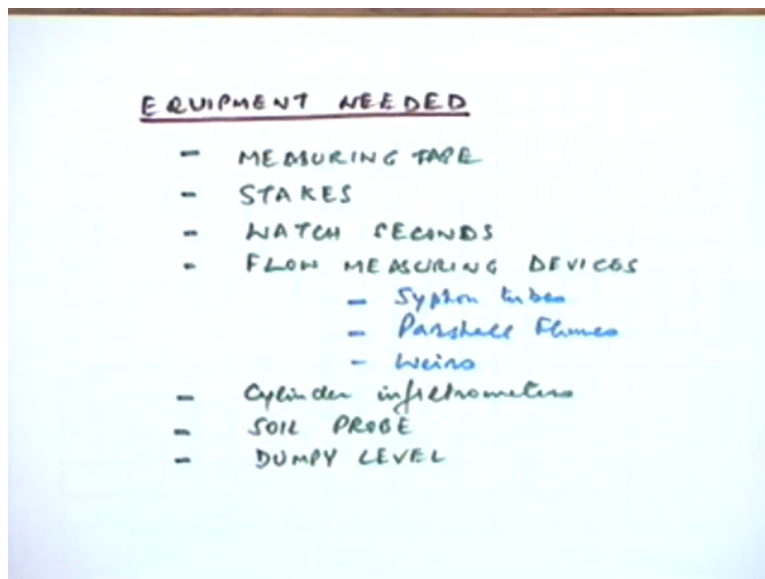 EQUIPMENT NEEDED
- MEASURING TAPE
- STAKES
- WATCH SECONDS
- FLOW MEASURING DEVICES
- Syphon tubes
- Parshall Flumes
- Weirs
- Cylinder infiltrometers
- SOIL PROBE
- DUMPY LEVEL